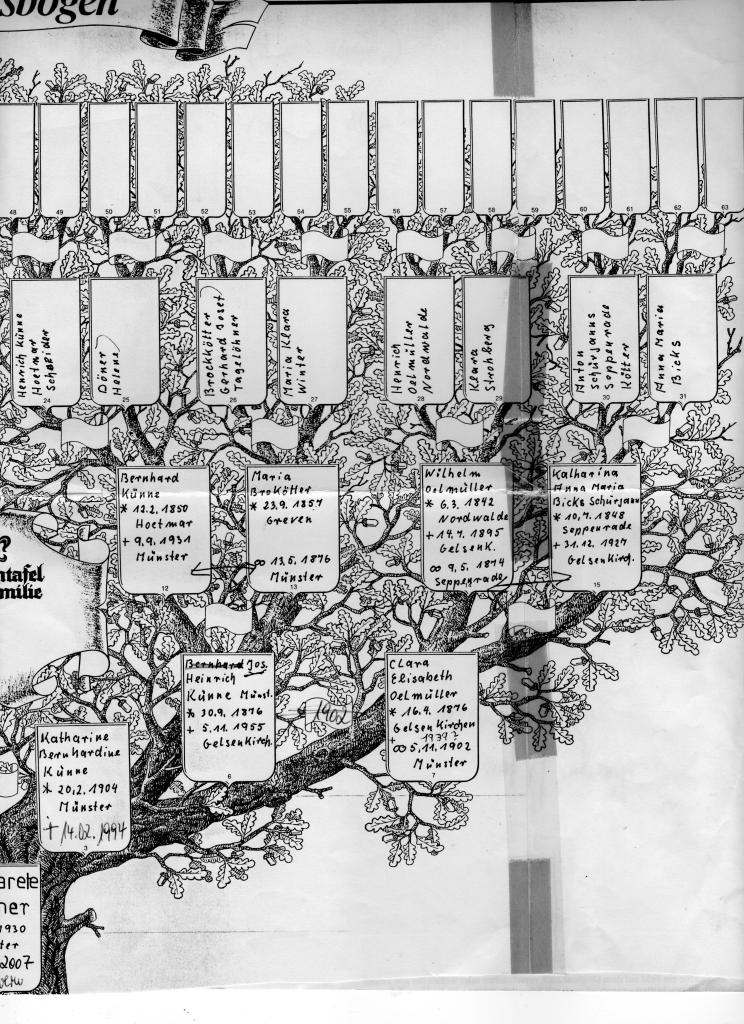 sbogen
48 49 50 51 52 53 54 55 56 57 58 59 60 61 62 63
Heinrich Künne
Hoetmar
Schneider
24
Döner
Helene
25
Brockkötter
Gerhard Josef
Tagelöhner
26
Maria Klara
Winter
27
Henrich
Oelmüller
Nordwalde
28
Klara
Strohberg
29
Anton
Schürjanns
Seppenrade
Kötter
30
Anna Maria
Bicks
31
Bernhard
Künne
* 12.2. 1850
Hoetmar
+ 9.9. 1931
Münster
12
Maria
Brokötter
* 23.9. 1857
Greven
∞ 13.5. 1876
Münster
13
Wilhelm
Oelmüller
* 6.3. 1842
Nordwalde
+ 14.7. 1895
GelsenK.
∞ 9.5. 1874
Seppenrade
Katharina
Anna Maria
Bicks Schürjann
* 10.7. 1848
Seppenrade
+ 31.12. 1927
Gelsenkirch.
15
ntafel
milie
Bernhard Jos.
Heinrich
Künne Münst.
* 30.9. 1876
+ 5.11. 1955
Gelsenkirch.
6
1902
Clara
Elisabeth
Oelmüller
* 16.9. 1876
Gelsenkirchen
+ 1939?
∞ 5.11. 1902
Münster
7
Katharine
Bernhardine
Künne
* 20.2. 1904
Münster
† 14.02. 1994
3
arete
ner
1930
ter
2007